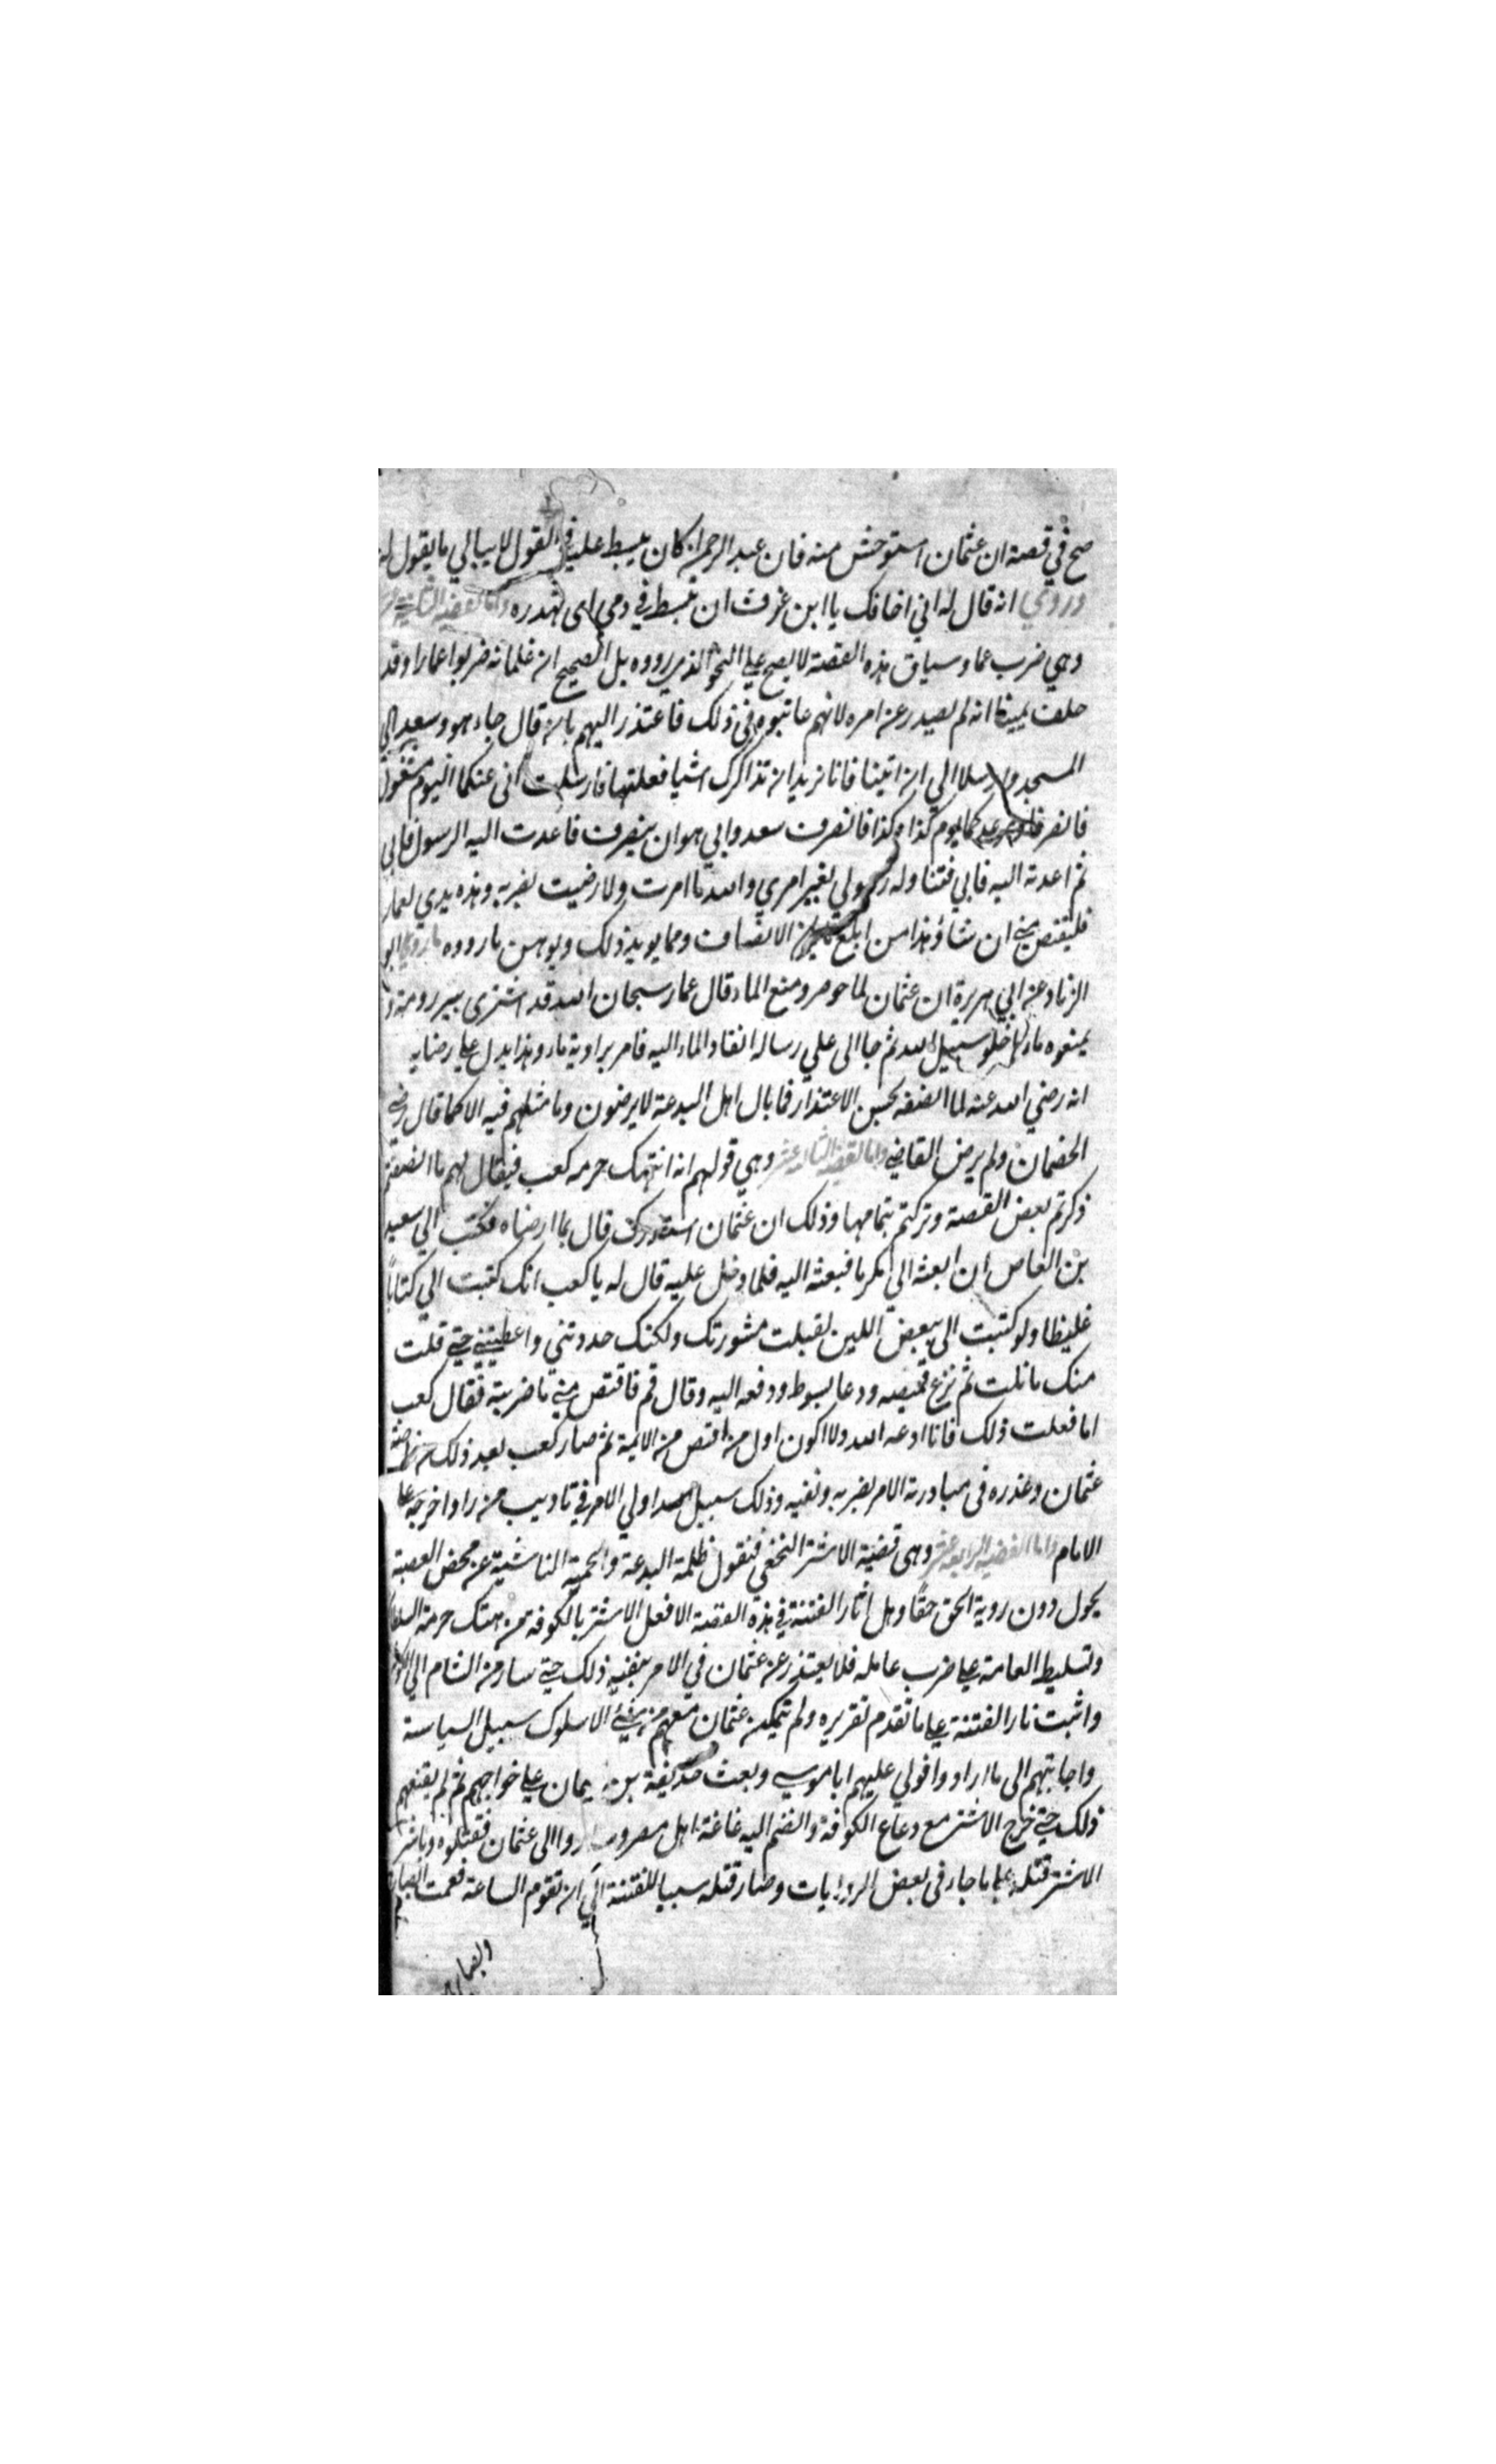 صح في قصته ان عثمان استوحش منه فان عبد الرحمن كان يبسط عليه في القول لا يبالي ما يقول له
وروي انه قال له اني اخافك يا ابن عوف ان تبسط في دمي اى تهدره واما القضية الثانية عشر
وهي ضرب عمار وسياق هذه القصة لا يصح على النحو الذي رووه بل الصحيح ان غلمانه ضربوا عمارا وقد
حلف يمينا انه لم يصدر عن امره لانهم عاتبوه في ذلك فاعتذر اليهم بان قال جاء هو وسعد الى
المسجد وارسلا الي ان ائتينا فانا نريد ان نذاكرك اشيا فعلتها فارسلت اني عنكما اليوم مشغول
فانصرفا وموعدكما يوم كذا وكذا فانصرف سعد وابي هو ان ينصرف فاعدت اليه الرسول فابي
ثم اعدته اليه فابي فتناوله رسولي بغير امري والله ما امرت ولا رضيت بضربه وهذه يدي لعمار
فليقتص مني ان شاء وهذا من ابلغ الانصاف ومما يويد ذلك ويوهن ما رووه ما روي ابو
الزناد عن ابي هريرة ان عثمان لما حوصر ومنع الماء قال عمار سبحان الله قد اشترى بير رومة و
يمنعوه ماءها خلو سبيل الله ثم جا الى علي وساله انفاد الماء اليه فامر براوية ماء وهذا يدل على رضايه
انه رضي الله عنه لما انصفه بحسن الاعتذار فما بال اهل البدعة لا يرضون وما مثلهم فيه الا كما قال رضي
الخصمان ولم يرض القاضي واما القضية الثالثة عشر وهي قولهم انه انتهك حرمه كعب فيقال لهم ما انصفتم
ذكرتم بعض القصة وتركتم تمامها وذلك ان عثمان استدرك قال بما ارضاه فكتب الي سعيد
بن العاص ان ابعثه الي مكرما فبعثه اليه فلما دخل عليه قال له يا كعب انك كتبت الي كتاباً
غليظا ولو كتبت الى ببعض اللين لقبلت مشورتك ولكنك حددتني واغضبتني حتى قلت
منك ما نلت ثم نزع قميصه ودعا بسوط ودفعه اليه وقال قم فاقتص مني ما ضربته فقال كعب
اما فعلت ذلك فانا ادعه لله ولا اكون اول من اقتص من الايمة ثم صار كعب بعد ذلك من خاصة
عثمان وعذره في مبادرته الامر بضربه ونفيه وذلك سبيل اولي الامر في تاديب من راوا خروجه على
الامام واما القضية الرابعة عشر وهى قضية الاشتر النخعي فنقول ظلمة البدعة والحمية الناشية عن محض العصبة
يحول دون روية الحق حقاً وهل اثار الفتنة في هذه القصة الا فعل الاشتر بالكوفة من هتك حرمة السلطان
وتسليط العامة على ضرب عامله فلا يعتذر عن عثمان في الامر بنفيه ذلك حتى سار من الشام الي الكوفة
واثبت نار الفتنة على ما تقدم تقريره ولم يتمكن عثمان معهم من شيء الا سلوك سبيل السياسة
واجابتهم الى ما ارادوا فولي عليهم ابا موسي وبعث حذيفة بن يمان على خراجهم ثم لم يقنعهم
ذلك حتى خرج الاشتر مع رعاع الكوفة وانضم اليه غاغة اهل مصر وساروا الى عثمان فقتلوه وباشر
الاشتر قتله على ما جاء في بعض الروايات وصار قتله سببا للفتنة الي ان تقوم الساعة فعميت ابصارهم